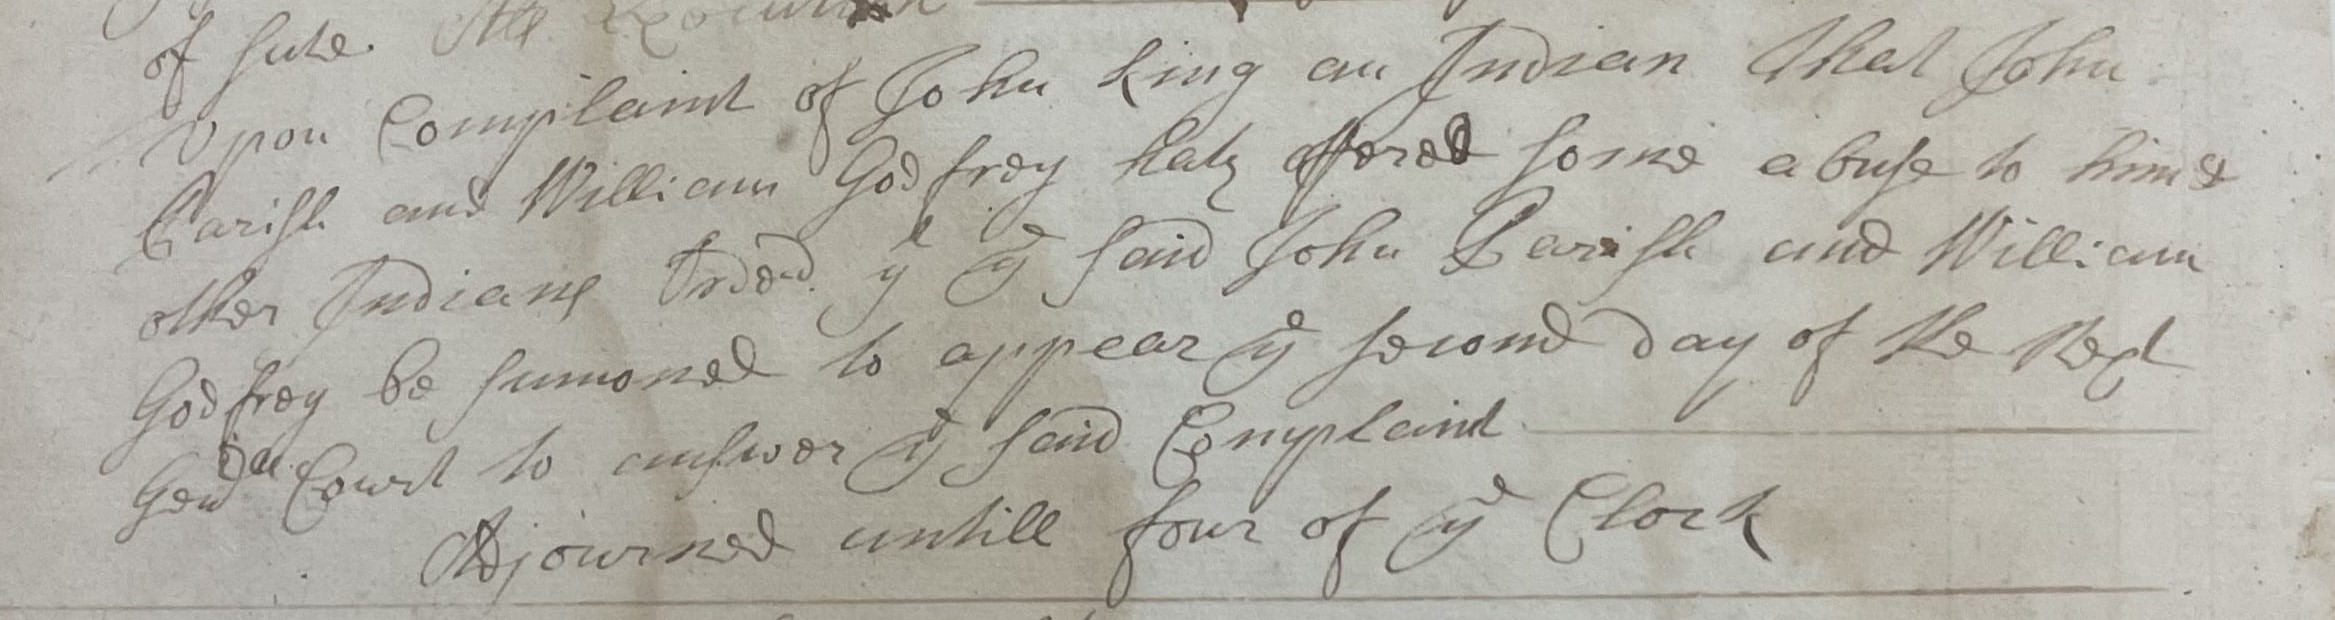 of sute
Upon Complaint of John King an Indian that John
Parish and William Godfrey hath offered some abuse to him &
other Indians Ordered yt ye said John Parish and William
Godfrey be sumoned to appear ye second day of the Next
Genall Court to answer ye said Complaint
Adjourned untill four of ye Clock